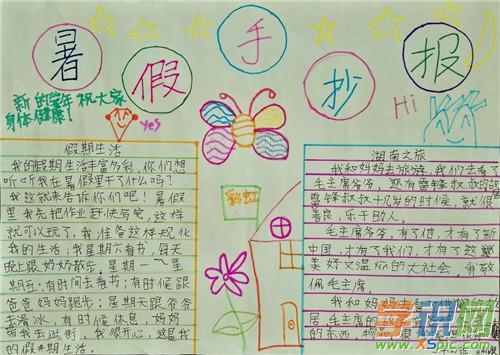 暑假手抄报
新的学年祝大家
身体健康！
yes
Hi
假期生活
我的假期生活丰富多彩，你们想
听听我在暑假里干了什么吗？
我这就来告诉你们吧！暑假
里我先把作业赶快写完，这样
就可以玩了，我准备这样规化
我的生活：我星期六看书，每天
晚上跟奶奶散步。星期一~星
期五：有时间去看书；有时候跟
爸爸妈妈跑步；星期天跟爷爷
去滑冰，有时候休息，妈妈
带我去逛街，我很开心，这是我
的假期生活。
彩虹
湖南之旅
我和妈妈去旅游，我们去看了
毛主席爷爷，还有雷锋叔叔的
雷锋叔叔十几岁的时候，就很
善良，乐于助人。
毛主席爷爷，有了他，才有了新
中国，才有了我们，才有了这
美好又温际的大社会。我敬
佩毛主席。
我和妈妈去
居毛主席的
的东西，物
学识网
www.XSpic.com